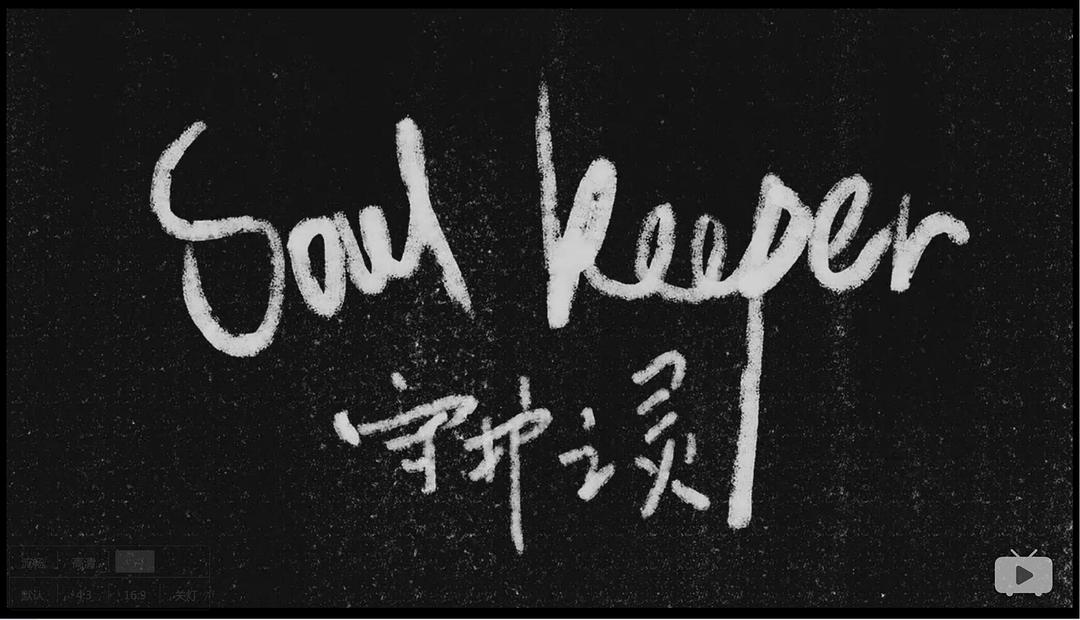 Soul keeper
守护之灵
高清
默认 4:3 16:9 关灯